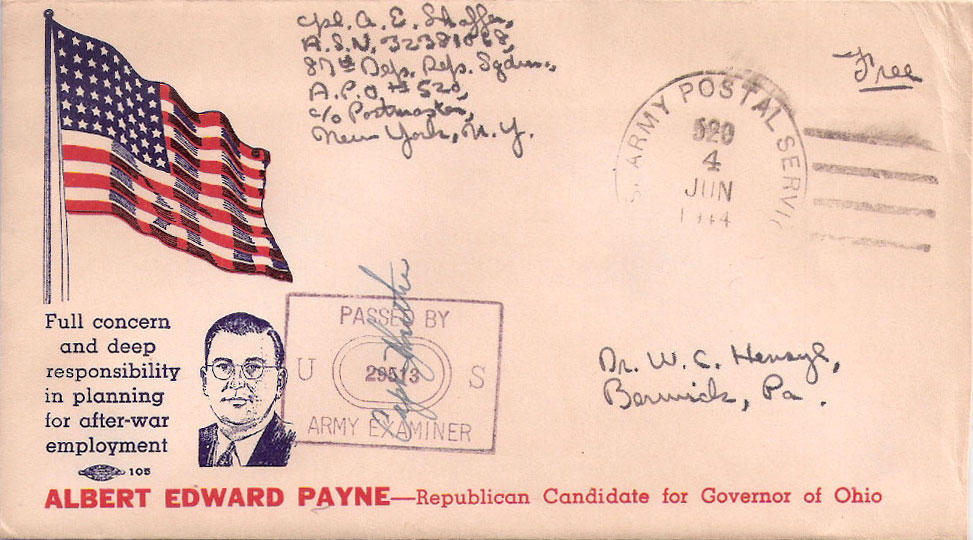 Cpl. A. E. Shaffer,
A.S.N. 32381068,
87th Dep. Rep. Sqdrn.,
A.P.O # 520,
c/o Postmaster,
New York, N.Y.
Free
ARMY POSTAL SERVI
520
4
JUN
1944
PASSED BY
U 29513 S
ARMY EXAMINER
Full concern
and deep
responsibility
in planning
for after-war
employment
105
Dr. W. C. Hensyl,
Berwick, Pa.
ALBERT EDWARD PAYNE—Republican Candidate for Governor of Ohio